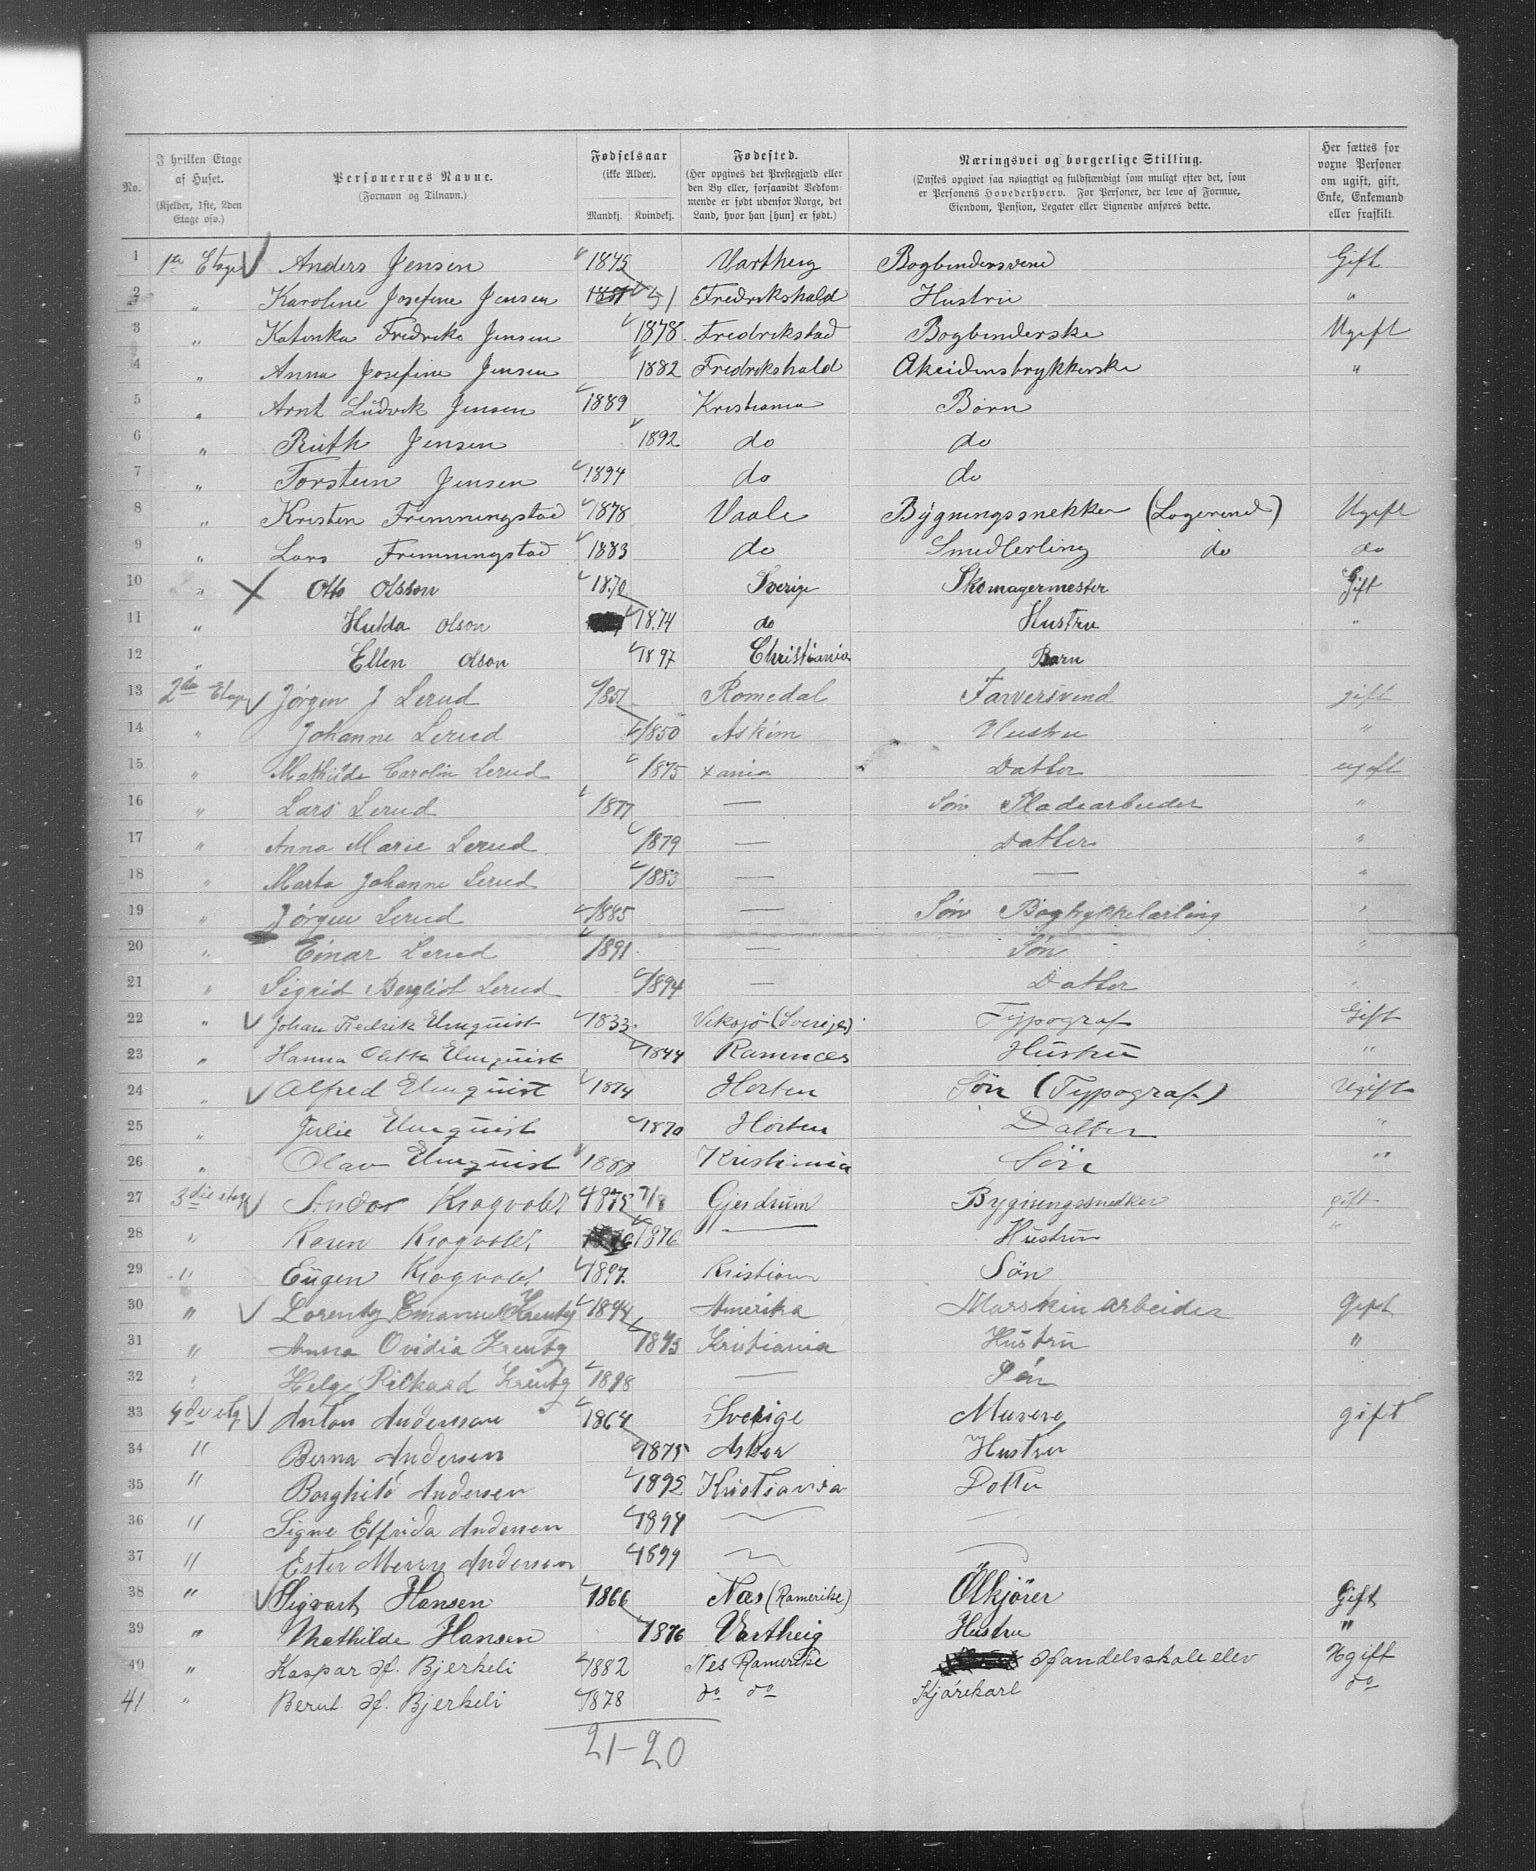 No. | I hvilken Etage af Huset. (Kjelder, 1ste, 2den Etage osv.) | Personernes Navne. (Fornavn og Tilnavn.) | Fødselsaar (ikke Alder). Mandkj. Kvindekj. | Fødested. (Her opgives det Prestegjæld eller den By eller, forsaavidt Vedkommende er født udenfor Norge, det Land, hvor han [hun] er født.) | Næringsvei og borgerlige Stilling. (Ønskes opgivet saa nøiagtigt og fuldstændigt som muligt efter det, som er Personens Hovederhverv. For Personer, der leve af Formue, Eiendom, Pension, Legater eller Lignende anføres dette. | Her sættes for voxne Personer om ugift, gift, Enke, Enkemand eller fraskilt.
1 1ste Etage Anders Jensen 1845 Vartheig Bogbindersvend Gift
2 " Karoline Josefine Jensen 51 Fredrikshald Hustru "
3 " Katinka Fredrike Jensen 1878 Fredrikstad Bogbinderske Ugift
4 " Anna Josefine Jensen 1882 Fredrikshald Akeidenstrykkerske "
5 " Arnt Ludvik Jensen 1889 Kristiania Børn
6 " Ruth Jensen 1892 do do
7 " Torstein Jensen 1894 do do
8 " Kristen Fremmingstad 1878 Vaale Bygningssnekker (Logerend) Ugift
9 " Lars Fremmingstad 1883 do Smedlerling do do
10 " Otto Olsson 1870 Sverige Skomagermester Gift
11 " Hulda Olson 1874 do Hustru "
12 " Ellen Olson 1897 Christiania Barn
13 2den Etage Jørgen J Lerud 1851 Romedal Farversvend gift
14 " Johanne Lerud 1850 Askim Hustru "
15 " Mathilde Carolin Lerud 1875 xania Datter ugift
16 " Lars Lerud 1877 — Søn Pladearbeider "
17 " Anna Marie Lerud 1879 — Datter "
18 " Marta Johanne Lerud 1883 — — "
19 " Jørgen Lerud 1885 — Søn Bogtrykkelærling "
20 " Einar Lerud 1891 — Søn "
21 " Sigrid Bergliot Lerud 1894 — Datter "
22 " Johan Fredrik Elmquist 1833 Veksjö (Sverige) Typograf Gift
23 " Hanna Olette Elmquist 1844 Ramnæs Hustru "
24 " Alfred Elmquist 1874 Horten Søn (Typograf) Ugift
25 " Julie Elmquist 1870 Horten Datter "
26 " Olav Elmquist 1888 Kristiania Søn "
27 3die etage Andor Krogvold 1875 7/8 Gjerdrum Bygningssnedker gift
28 " Karen Krogvold 1876 — Hustru "
29 " Eugen Krogvold 1897 Kristiania Søn
30 " Lorentz Emanuel Krentz 1894 Amerika Marskinarbeider Gift
31 " Anna Ovidia Krentz 1873 Kristiania Hustru "
32 " Helge Rikhard Krentz 1898 — Søn
33 4de etg Anton Andersson 1864 Sverige Murere gift
34 " Berna Andersen 1875 Asker Hustru
35 " Borghild Andersen 1892 Kristiania Dotter
36 " Signe Elfrida Andersen 1894 — —
37 " Ester Merry Andersen 1899 — —
38 " Sigvart Hansen 1866 Næs (Ramerike) Ølkjører Gift
39 " Mathilde Hansen 1876 Vartheig Hustru "
40 " Kaspar H. Bjerkeli 1882 Nes Ramerike Handelsskoleelev Ugift
41 " Bernt H. Bjerkeli 1878 do do Kjørekarl do
21-20